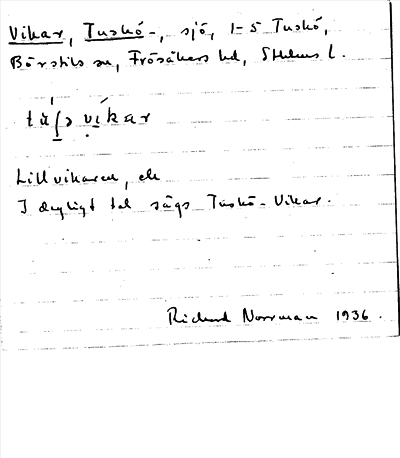 Vikar, Tuskö-, sjö, 1-5 Tuskö,
Börstils sn, Frösåkers hd, Sthlms l.
vikar
Lillvikaren, ek
I dagligt tal sägs Tuskö-Vikar.
Richard Norrman 1936.